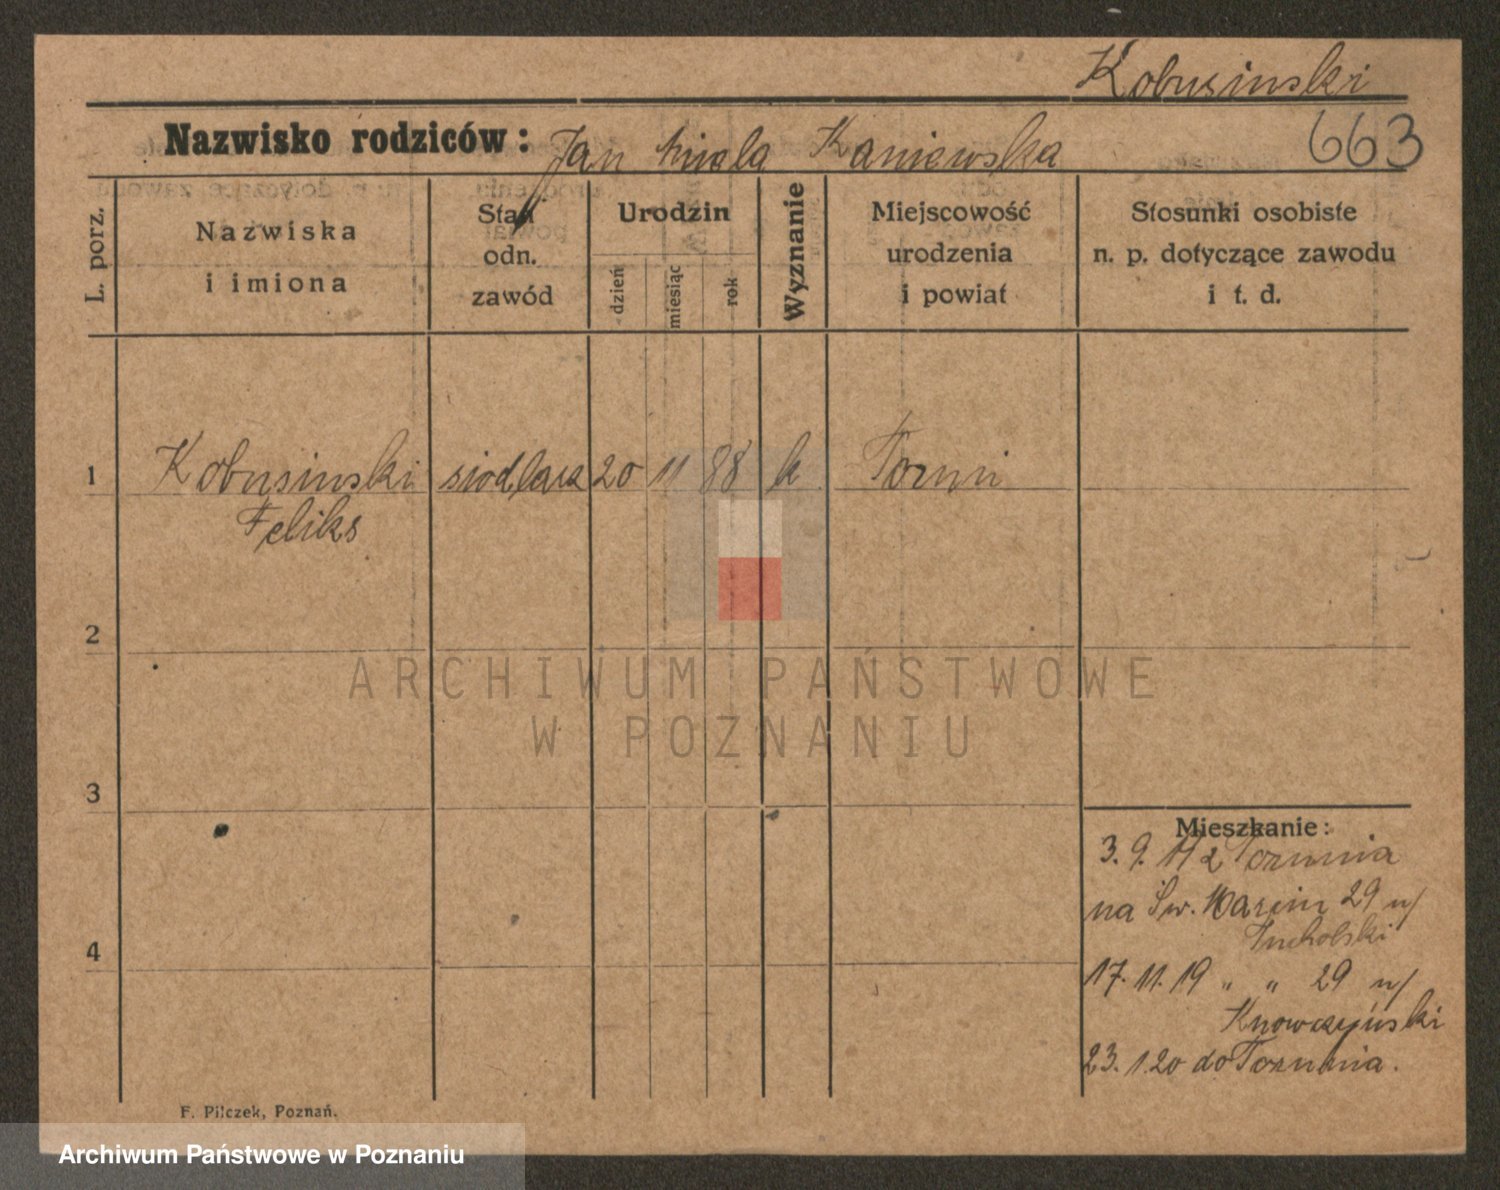 Kobusinski
663
Nazwisko rodziców: Jan Kaniewska
L. porz.
Nazwiska
i imiona
Stan
odn.
zawód
Urodzin
dzień
miesiąc
rok
Wyznanie
Miejscowość
urodzenia
i powiat
Stosunki osobiste
n. p. dotyczące zawodu
i t. d.
1 Kobusinski siodlarz 20 11 88 k Toruń
Feliks
2
3
4
Mieszkanie:
3. 9. z Torunia
na Św. Marcin 29 u/
Tucholski
17. 11. 19 " " 29 u/
23. 1. 20 do Torunia.
F. Pilczek, Poznań.
ARCHIWUM PAŃSTWOWE
W POZNANIU
Archiwum Państwowe w Poznaniu